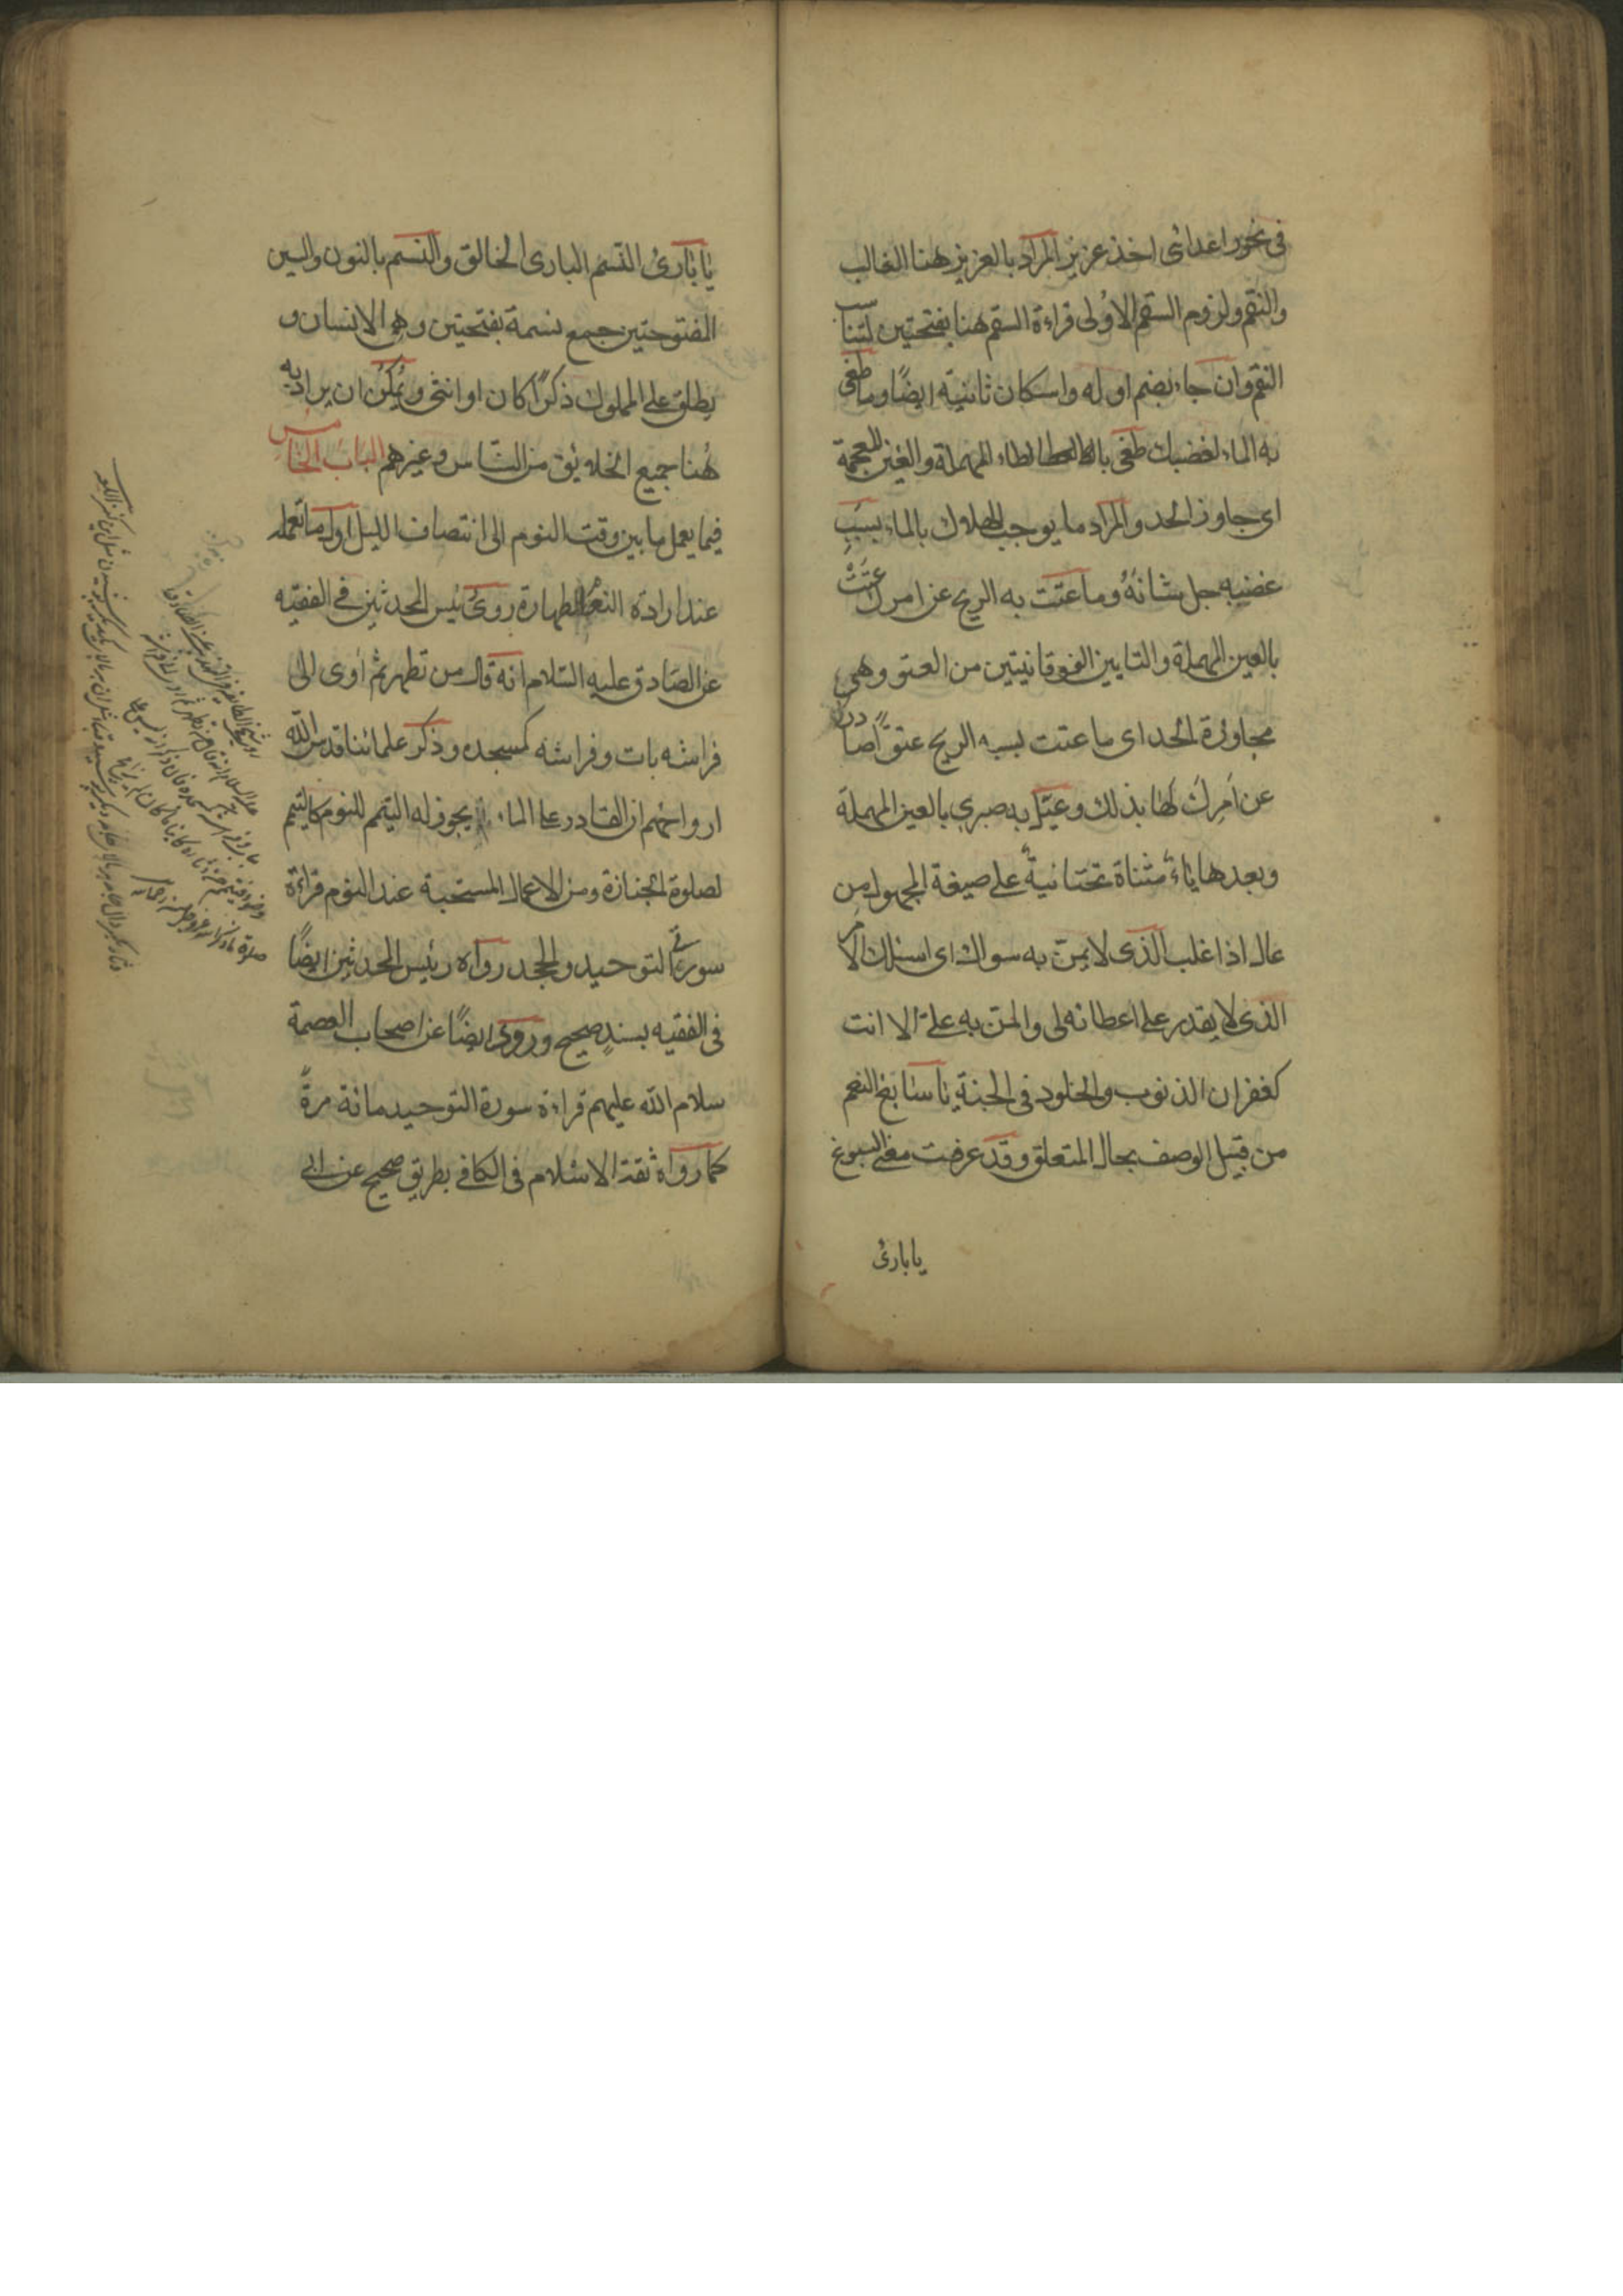 في نحور اعدائي اخذ عزيز المراد بالعزيز هنا الغالب
والنقم ولزوم السقم الاولى قراءة السقم هنا بفتحتين لتناسب
النقم وان جاء بضم اوله واسكان ثانية ايضًا وما طغى
به الماء لغضبك طغى بالطاء المهملة والغين المعجمة
اى جاوز الحد والمراد ما يوجب الهلاك بالماء بسبب
غضبه جل شانهُ وما عتت به الريح عن امرك عتت
بالعين المهملة والتايين الفوقانيتين من العتو وهى
مجاوزة الحد اى ما عتت بسببه الريح عتوًا صادرًا
عن امرك لها بذلك وعيل به صبري بالعين المهملة
وبعدها ياء مثناة تحتانية على صيغة المجهول من
عال اذا غلب الذى لا يمن به سواك اى اسئلك الامر
الذى لا يقدر على اعطائه لى والمن به علىّ الا انت
كغفران الذنوب والخلود فى الجنة يا سابغ النعم
من قبيل الوصف بحال المتعلق وقد عرفت معنى السبوغ
يا بارئ
يا بارئ النسم البارى الخالق والنسم بالنون والسين
المفتوحتين جمع نسمة بفتحتين وهى الانسان و
يطلق على المملوك ذكرًا كان او انثى ويمكن ان يراد به
هُنا جميع الخلايق من الناس وغيرهم الباب الخامس
فيما يعمل ما بين وقت النوم الى انتصاف الليل اول ما تعمله
عند ارادة النوم الطهارة روى رئيس المحدثين في الفقيه
عن الصادق عليه السلام انه قال من تطهر ثم اوى الى
فراشه بات وفراشه كمسجده وذكر علمائنا قدس الله
ارواحهم ان القادر على الماء يجوز له التيمم للنوم كالتيمم
لصلوة الجنازة ومن الاعمال المستحبة عند النوم قراءة
سورتي التوحيد والجحد رواه رئيس المحدثين ايضًا
فى الفقيه بسندٍ صحيح وروى ايضًا عن اصحاب العصمة
سلام الله عليهم قراءة سورة التوحيد مائة مرةً
كما رواه ثقة الاسلام فى الكافي بطريق صحيح عن ابي